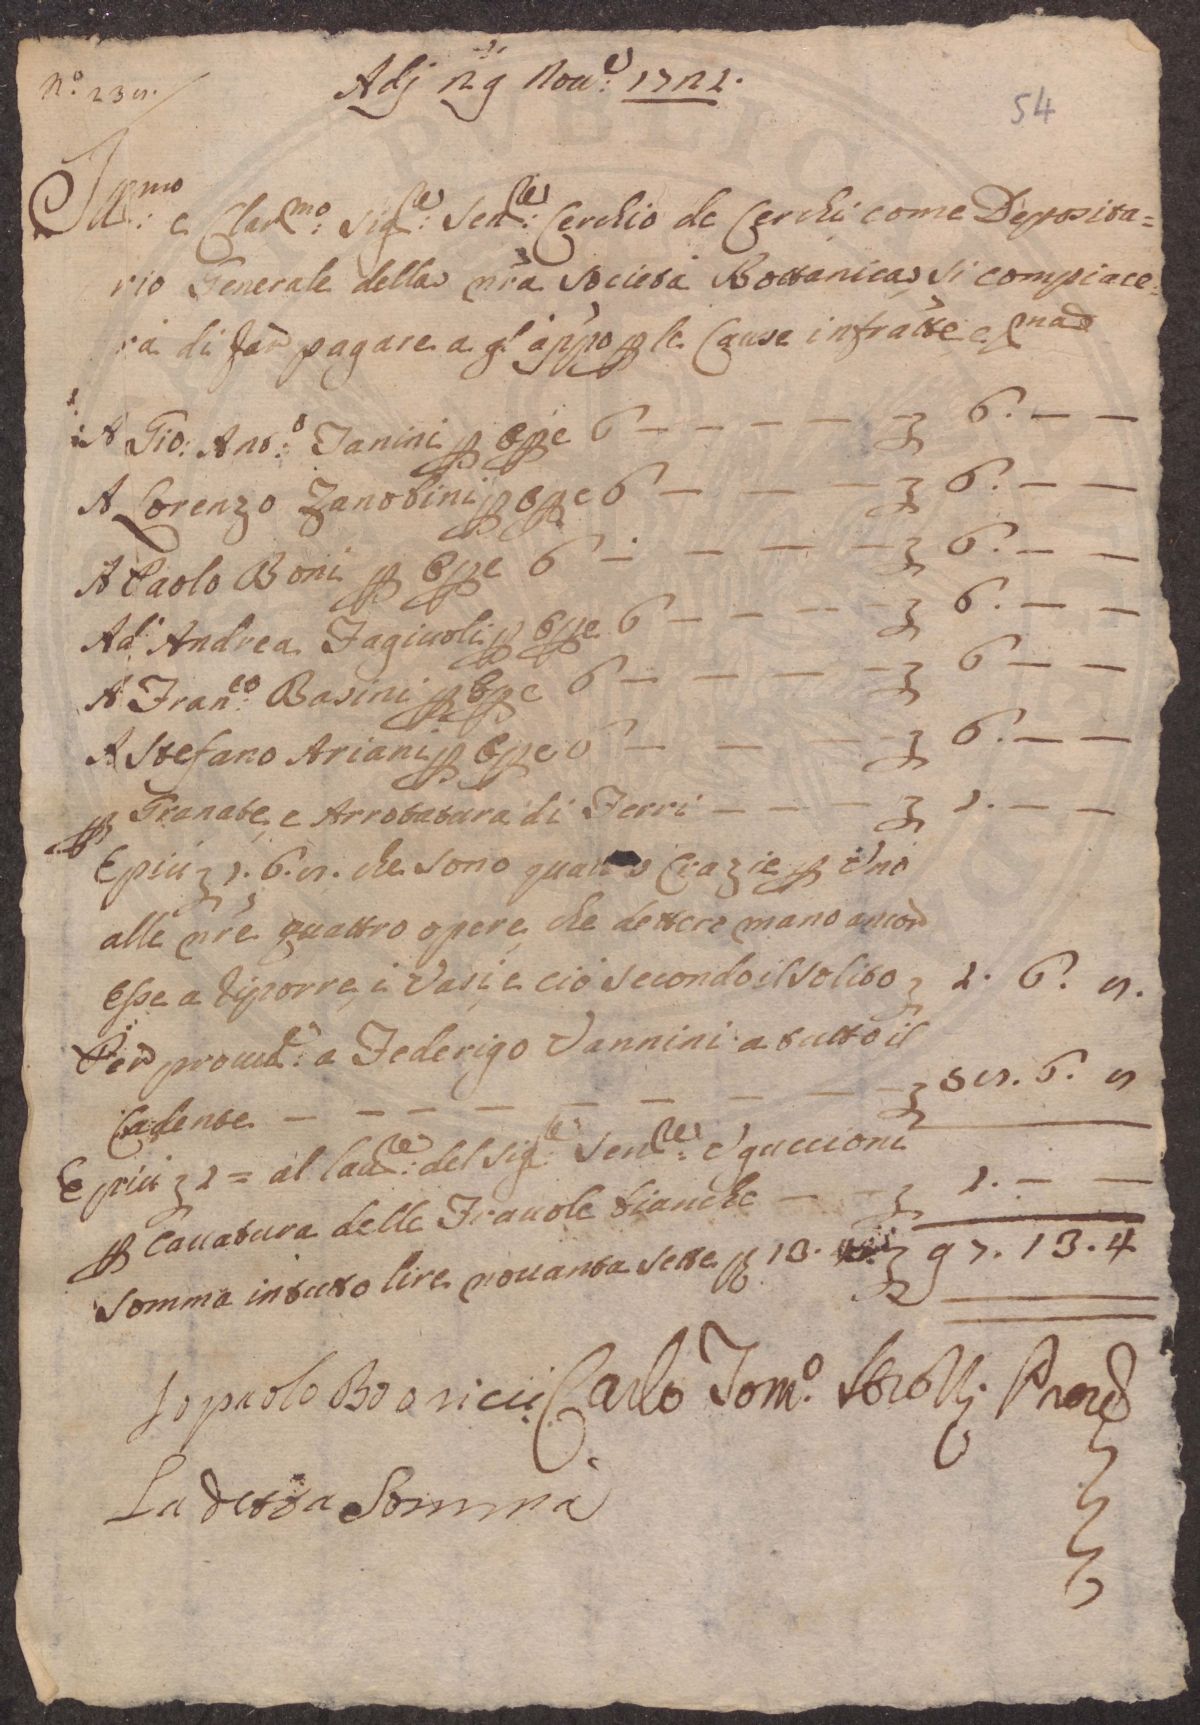 N.º 234.
Adj 29 Nou.e 1721.
54
Ill.mo e Clar.mo Sig.re Sen.re Cerchio de Cerchi come Deposita=
rio Generale della nra Società Bottanica, si compiace=
rà di far pagare a gl'appo p le Cause infratte, e
A Gio: Ant.o Janini p Ope 6 — — — — 6. — —
A Lorenzo Zanobini p ope 6 — — — 6. — —
A Paolo Boni p Ope 6 — — — — 6. — —
Ad' Andrea Fagiuoli p Ope 6 — — — — 6. — —
A Fran.co Basini p Ope 6 — — — — 6 — —
A Stefano Ariani p Ope 6 — — — 6. — —
p Granate, e Arrotatura di Ferri — — — — 1. — —
E piu 1. 6. 4. che sono quattro Crazie p Uno
alle nre quattro opere, che dettero mano ancor
esse a riporre i Vasi, e ciò secondo il solito 1. 6. 4.
Per prouu.e a Federigo Vannini a tutto il
Cadente — — — — — — — — 54. 6. 4
E piu 2 = al lau.re del Sig.re Sen.re Guccioni
p Cauatura delle Frauole bianche — — 2. — —
Somma in tutto lire nouanta sette p 13. 97. 13. 4
Io paolo Carlo Tom.o Strozzi Prou.
La detta Somma